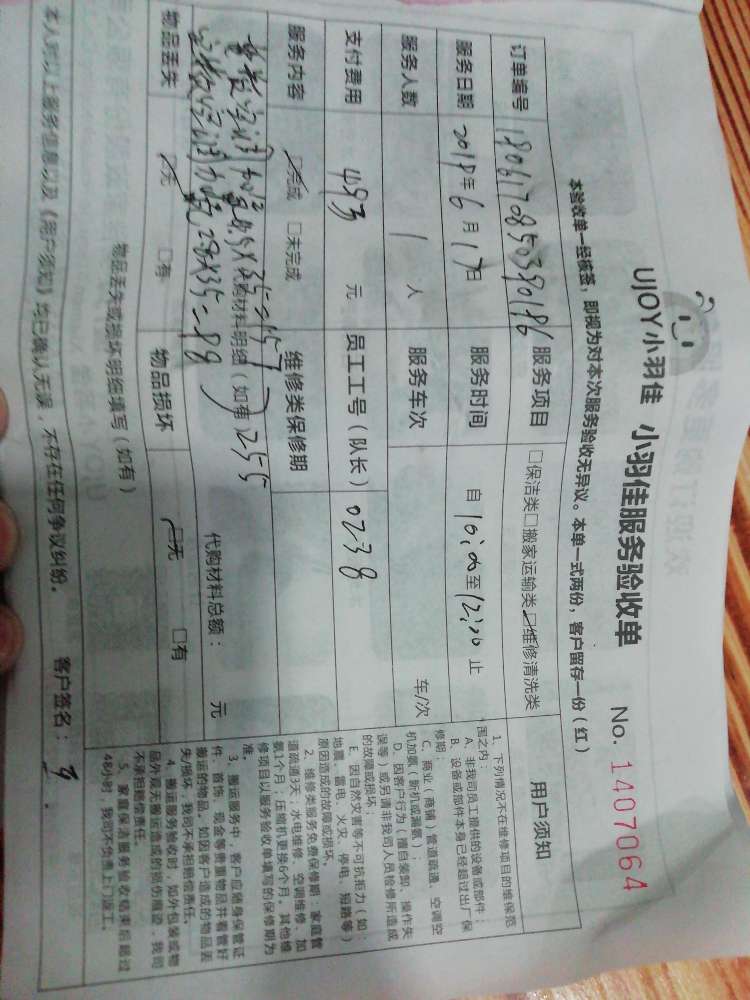 UJOY小羽佳 小羽佳服务验收单 No. 1407064
本验收单一经核签，即视为对本次服务验收无异议。本单一式两份，客户留存一份（红）
订单编号 1806170850390186 服务项目 □保洁类□搬家运输类☑维修清洗类
服务日期 2018年6月17日 服务时间 自10:20至12:20止
服务人数 1 人 服务车次 车/次
支付费用 493 元 员工工号（队长） 0238
服务内容 ☑完成 □未完成 维修类保修期
代购材料明细（如有） 代购材料总额： 元
255
物品丢失 ☑无 □有 物品损坏 ☑无 □有
物品丢失或损坏明细填写（如有）
本人对以上服务信息以及《用户须知》均已确认无误，不存在任何争议纠纷。 客户签名：
用户须知
1、下列情况不在维修项目的维保范
围之内：
A、非我司员工提供的设备或部件；
B、设备或部件本身已经超过出厂保
修期；
C、商业（商铺）管道疏通、空调空
机加氟（新机或漏氟）；
D、因客户行为（擅自装卸、操作失
误等）或另请非我司人员检修所造成
的故障或损坏；
E、因自然灾害等不可抗拒力（如：
地震、雷电、火灾、停电、短路等）
原因造成的故障或损坏。
2、维修类服务免费保修期：家庭管
道疏通3天；水电维修、空调维修、加
氟1个月；压缩机更换6个月。其他维
修项目以服务验收单填写的保修期为
准。
3、搬运服务中，客户应随身保管证
件、首饰、现金等贵重物品并看管好
搬运的物品。如因客户造成的物品丢
失/损坏，我司不承担赔偿责任。
4、搬运服务验收时，如外包装或物
品外观无搬运造成的损伤痕迹，我司
不承担赔偿责任。
5、家庭保洁服务验收结束后超过
48小时，我司不负责上门返工。